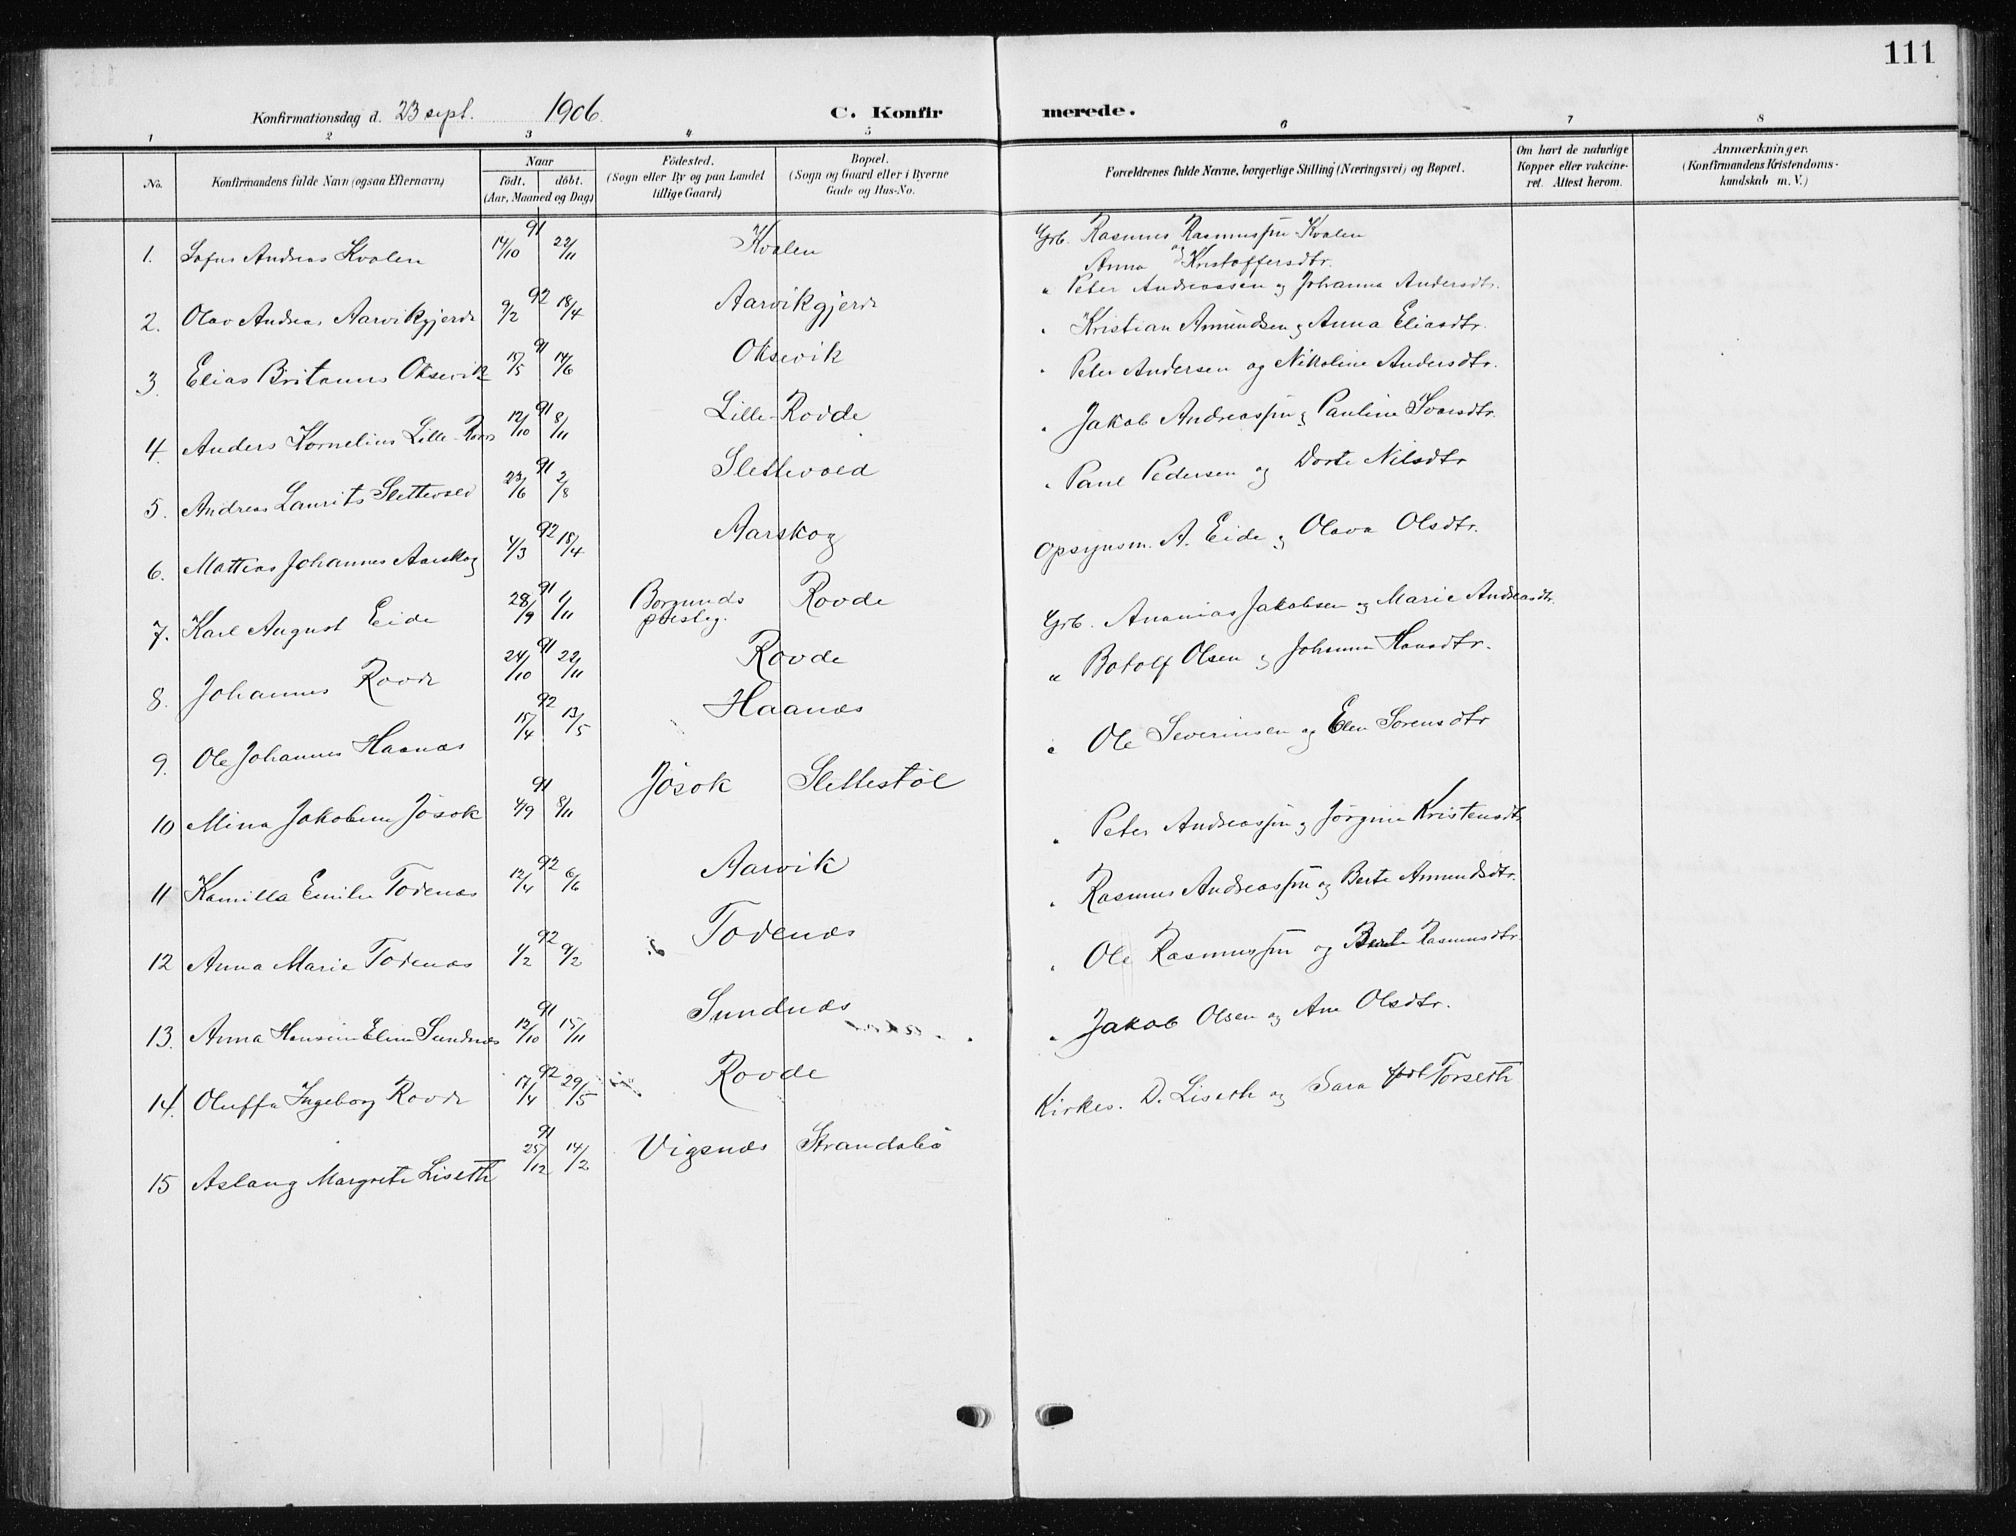 111
Konfirmationsdag d. 23 sept. 1906
C. Konfirmerede.
1 2 3 4 5 6 7 8
No. Konfirmandens fulde Navn (ogsaa Efternavn) Naar født. døbt. (Aar, Maaned og Dag) Fødested. (Sogn eller By og paa Landet tillige Gaard) Bopæl. (Sogn og Gaard eller i Byerne Gade og Hus-No. Forældrenes fulde Navne, borgerlige Stilling (Næringsvei) og Bopæl. Om havt de naturlige Kopper eller vakcineret. Attest herom. Anmærkninger. (Konfirmandens Kristendomskundskab m. V.)
1. Sofus Andreas Kvalen 91 14/10 22/11 Kvalen Grb. Rasmus Rasmussen Kvalen
og Anna Kristoffersdtr.
2. Olav Andreas Aarvikgjerde 92 9/2 18/4 Aarvikgjerde " Peter Andreassen og Johanna Andersdtr.
3. Elias Britanus Oksevik 91 15/5 14/6 Oksevik " Kristian Amundsen og Anna Eliasdtr.
4. Anders Kornelius Lille-Rovde 91 12/10 8/11 Lille-Rovde " Peter Andersen og Nikoline Andersdtr.
5. Andreas Laurits Slettevold 91 23/6 2/8 Slettevold " Jakob Andreassen og Pauline Ivarsdtr.
6. Mattias Johannes Aarskog 92 4/3 18/4 Aarskog " Paul Pedersen og Dorte Nilsdtr
7. Karl August Eide 91 28/9 1/11 Borgunds præstg. Rovde Opsynsm. A. Eide og Olava Olsdtr.
8. Johannes Rovde 91 24/10 22/11 Rovde Grb. Ananias Jakobsen og Marie Andreasdtr.
9. Ole Johannes Haanæs 92 15/4 13/5 Haanæs " Botolf Olsen og Johanna Hansdtr.
10 Mina Jakobine Jøsok 91 4/9 8/11 Jøsok Slettestøl " Ole Severinsen og Elen Sørensdtr
11 Kamilla Emilie Todenæs 92 12/4 6/6 Aarvik " Peter Andreassen og Jørgine Kristensdtr
12 Anna Marie Todenæs 92 1/2 9/2 Todenæs " Rasmus Andreassen og Berte Amundsdtr.
13. Anna Hansine Eline Sundnæs 91 12/10 15/11 Sundnæs " Ole Rasmussen og Berte Rasmusdtr.
14. Oluffa Ingeborg Rovde 92 17/4 29/5 Rovde " Jakob Olsen og Ane Olsdtr.
15 Aslaug Margrete Liseth 91 25/12 14/2 Vigsnæs Strandabø Kirkes. D. Liseth og Sara født Torseth